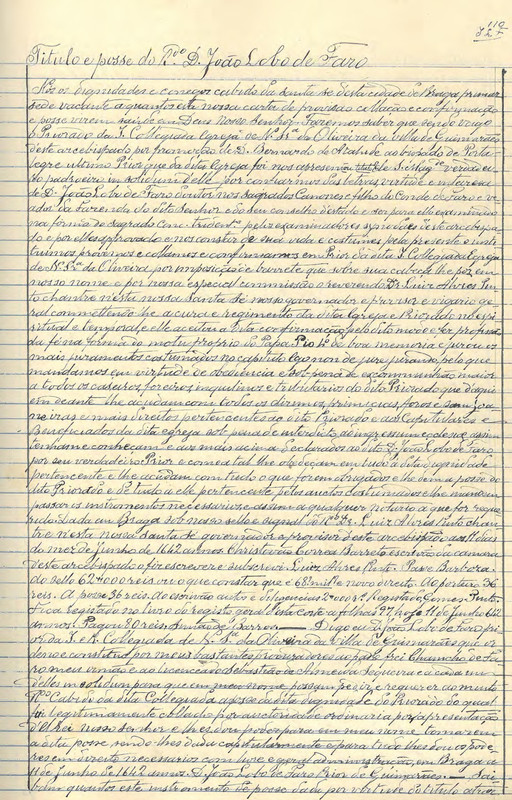 119
Titulo e posse do Rdo D. João Lobo de Faro
Nós os dignidades e conegos cabido da santa Sé desta cidade de Braga primaz
sede vacante a quantos esta nossa carta de provisão collação e confirmação
e posse virem saude em Deus Nosso Senhor. Fazemos saber que sendo vago
o Priorado da I. Collegiada Egreja de Nª Srª da Oliveira da villa de Guimarães
deste arcebispado por promoção de D. Bernardo de Ataíde ao bispado de Porta-
legre ultimo Prior que da dita Egreja foi nos apresentou
padroeiro in solidum della por confiarmos das letras virtude e
de D. João Lobo de Faro doutor nos Sagrados Canones e filho do Conde de Faro e ve-
ador da Fazenda do dito Senhor e do seu conselho destado e ser por elle examinado
na forma do Sagrado Conc. Trident. pelos examinadores synodaes deste arcebispa-
do e por elles approvado e nos constar de sua vida e costumes pela presente o insti-
tuimos provemos e collamos e confirmamos em Prior da dita I. Collegiada Egreja
de Nª Srª da Oliveira, por imposição de barrete que sobre sua cabeça lhe poz em
nosso nome e por nossa especial commissão o reverendo Dr. Luiz Alvres Pin-
to chantre nesta nossa Santa Sé nosso governador e provisor e vigario ge-
ral commettendo lhe a cura e regimento da dita Egreja e Priorado no espi-
ritual e temporal e elle aceitou a dita confirmação pelo dito modo e fez profissão
da fé na forma do motu proprio do Papa Pio 4º de boa memoria e jurou os
mais juramentos costumados no capitulo Ego non de jure jurando, pelo que
mandamos em virtude de obediencia e sob pena de excommunhão maior
a todos os caseiros, foreiros inquilinos e tributarios do dito Priorado que daqui
em deante lhe acudam com todos os dizimos, primicias, foros e
e mais direitos pertencentes ao dito Priorado e aos Capitulares e
Beneficiados da dita egreja sob pena de interdito ab ingressu ecclesiae assim
tenham e conheçam e aos mais acima declarados ao dito D. João Lobo de Faro
por seu verdadeiro Prior e como a tal lhe obedeçam em tudo a dita dignidade
pertencente e lhe acudam com tudo o que forem obrigados e lhe dem a posse do
dito Priorado e de tudo a elle pertencente pelos autos costumados e lhe mandem
passar os instromentos necessarios e assim a qualquer notario a que for reque-
rido. Dada em Braga sob nosso sello e signal do Rdo Dr. Luiz Alvres Pinto chan-
tre nesta nossa Santa Sé governador e provisor deste arcebispado aos 11 dias
do mez de junho de 1642 annos. Christovão Correa Barreto escrivão da camara
deste arcebispado o fiz escrever e subscrevi. Luiz Alvres Pinto. Passe Barbosa.
do sello 62$000 reis
reis. A posse 36 reis. Ao escrivão auto e diligencias 2$000 rs. Registado Gomes. Pinto.
Fica registado no livro do registo geral desta corte a folhas 27 hoje 11 de junho 642
annos. Pagou 80 reis. Simão de Barros. — Digo eu D. João Lobo de Faro pri-
or da I. e R. Collegiada de Nª Srª da Oliveira da Villa de Guimarães que or-
deno e constituo por meus bastantes procuradores ao padre Frei de Fa-
ro meu irmão e ao licenceado Sebastião de Almeida Siqueira a cada um
delles in solidum para que em meu nome possam pedir e requerer ao muito
Rdo Cabido da dita Collegiada a posse da dita dignidade do Priorado do qual
fui legitimamente collado por auctoridade ordinaria por apresentação
d'El-rei nosso senhor e lhes dou poder para em meu nome tomarem
a dita posse sendo-lhes dada capitularmente e para tudo lhes dou os pode-
res em direito necessarios com livre e geral administração, em Braga a
11 de Junho de 1642 annos. D. João Lobo de Faro Prior de Guimarães. — Sai-
bam quantos este instromento de posse dada por virtude do titulo atraz